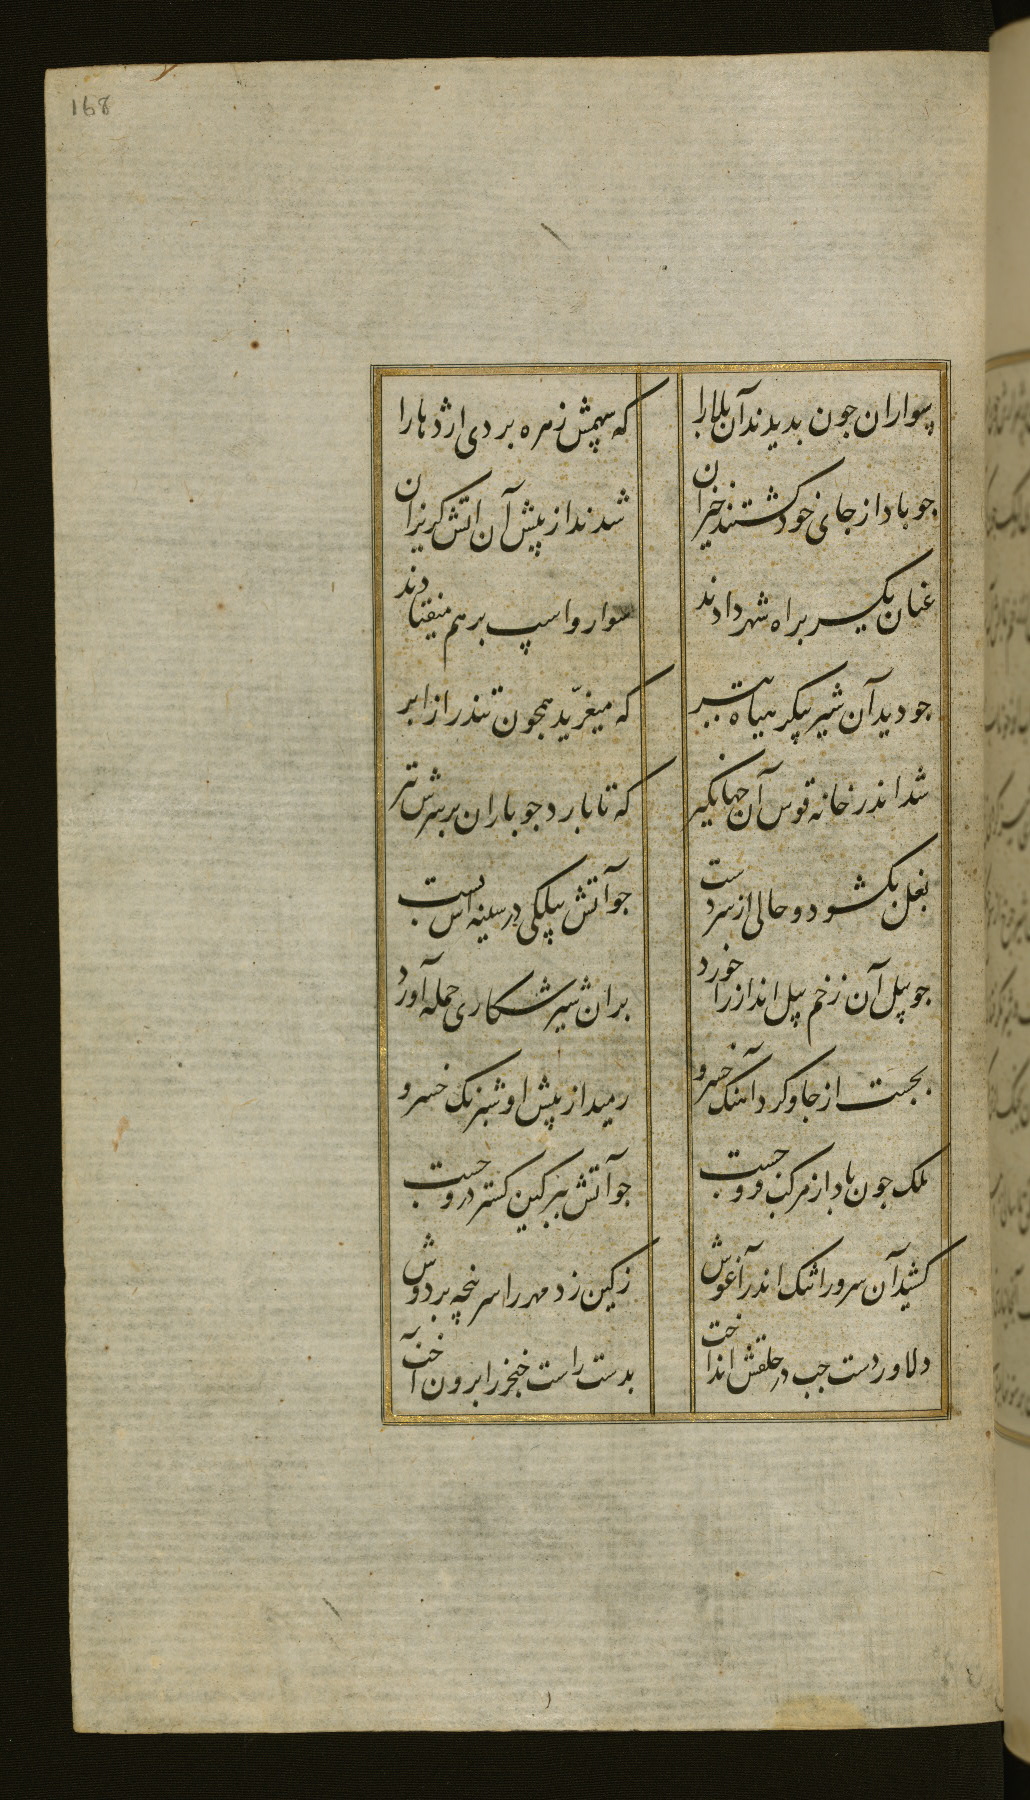 168
سواران جون بدیدند آن بلا را
که سهمش زهره بردی اژدها را
جو باد از جای خود گشتند خیزان
شدند از پیش آن اتش کریزان
عنان یکسر براه شهر دادند
سوار و اسپ برهم میفتادند
جو دید آن شیر پیکر
که میغرّید همجون تندر از ابر
شد اندر خانه قوس آن جهانکیر
که تا بارد جو باران بر سرش تیر
بغل بکشود و حالی از سر دست
جو آتش بیلکی در سینه اش بست
جو پیل آن زخم پیل انداز را خورد
بران شیر شکاری حمله آورد
بجست از جا و کرد آهنک خسرو
رمید از پیش او شبرنک خسرو
ملک جون باد از مرکب فرو جست
جو آتش ببر کین کستر درو جست
کشید آن سرو را تنک اندر آغوش
ز کین زد مهر را سرپنجه بر دوش
دلاور دست جب در حلقش انداخت
بدست راست خنجر را برون آخت